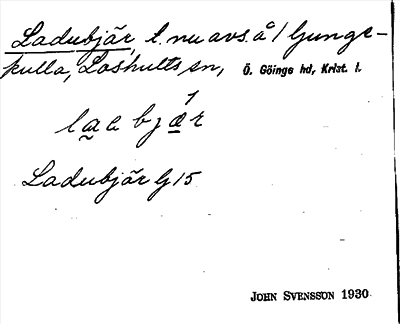 Ladubjär, l. nu avs. å Ljunge-
kulla, Loshults sn, Ö. Göinge hd, Krist. l.
Ladubjär G 15
JOHN SVENSSON 1930